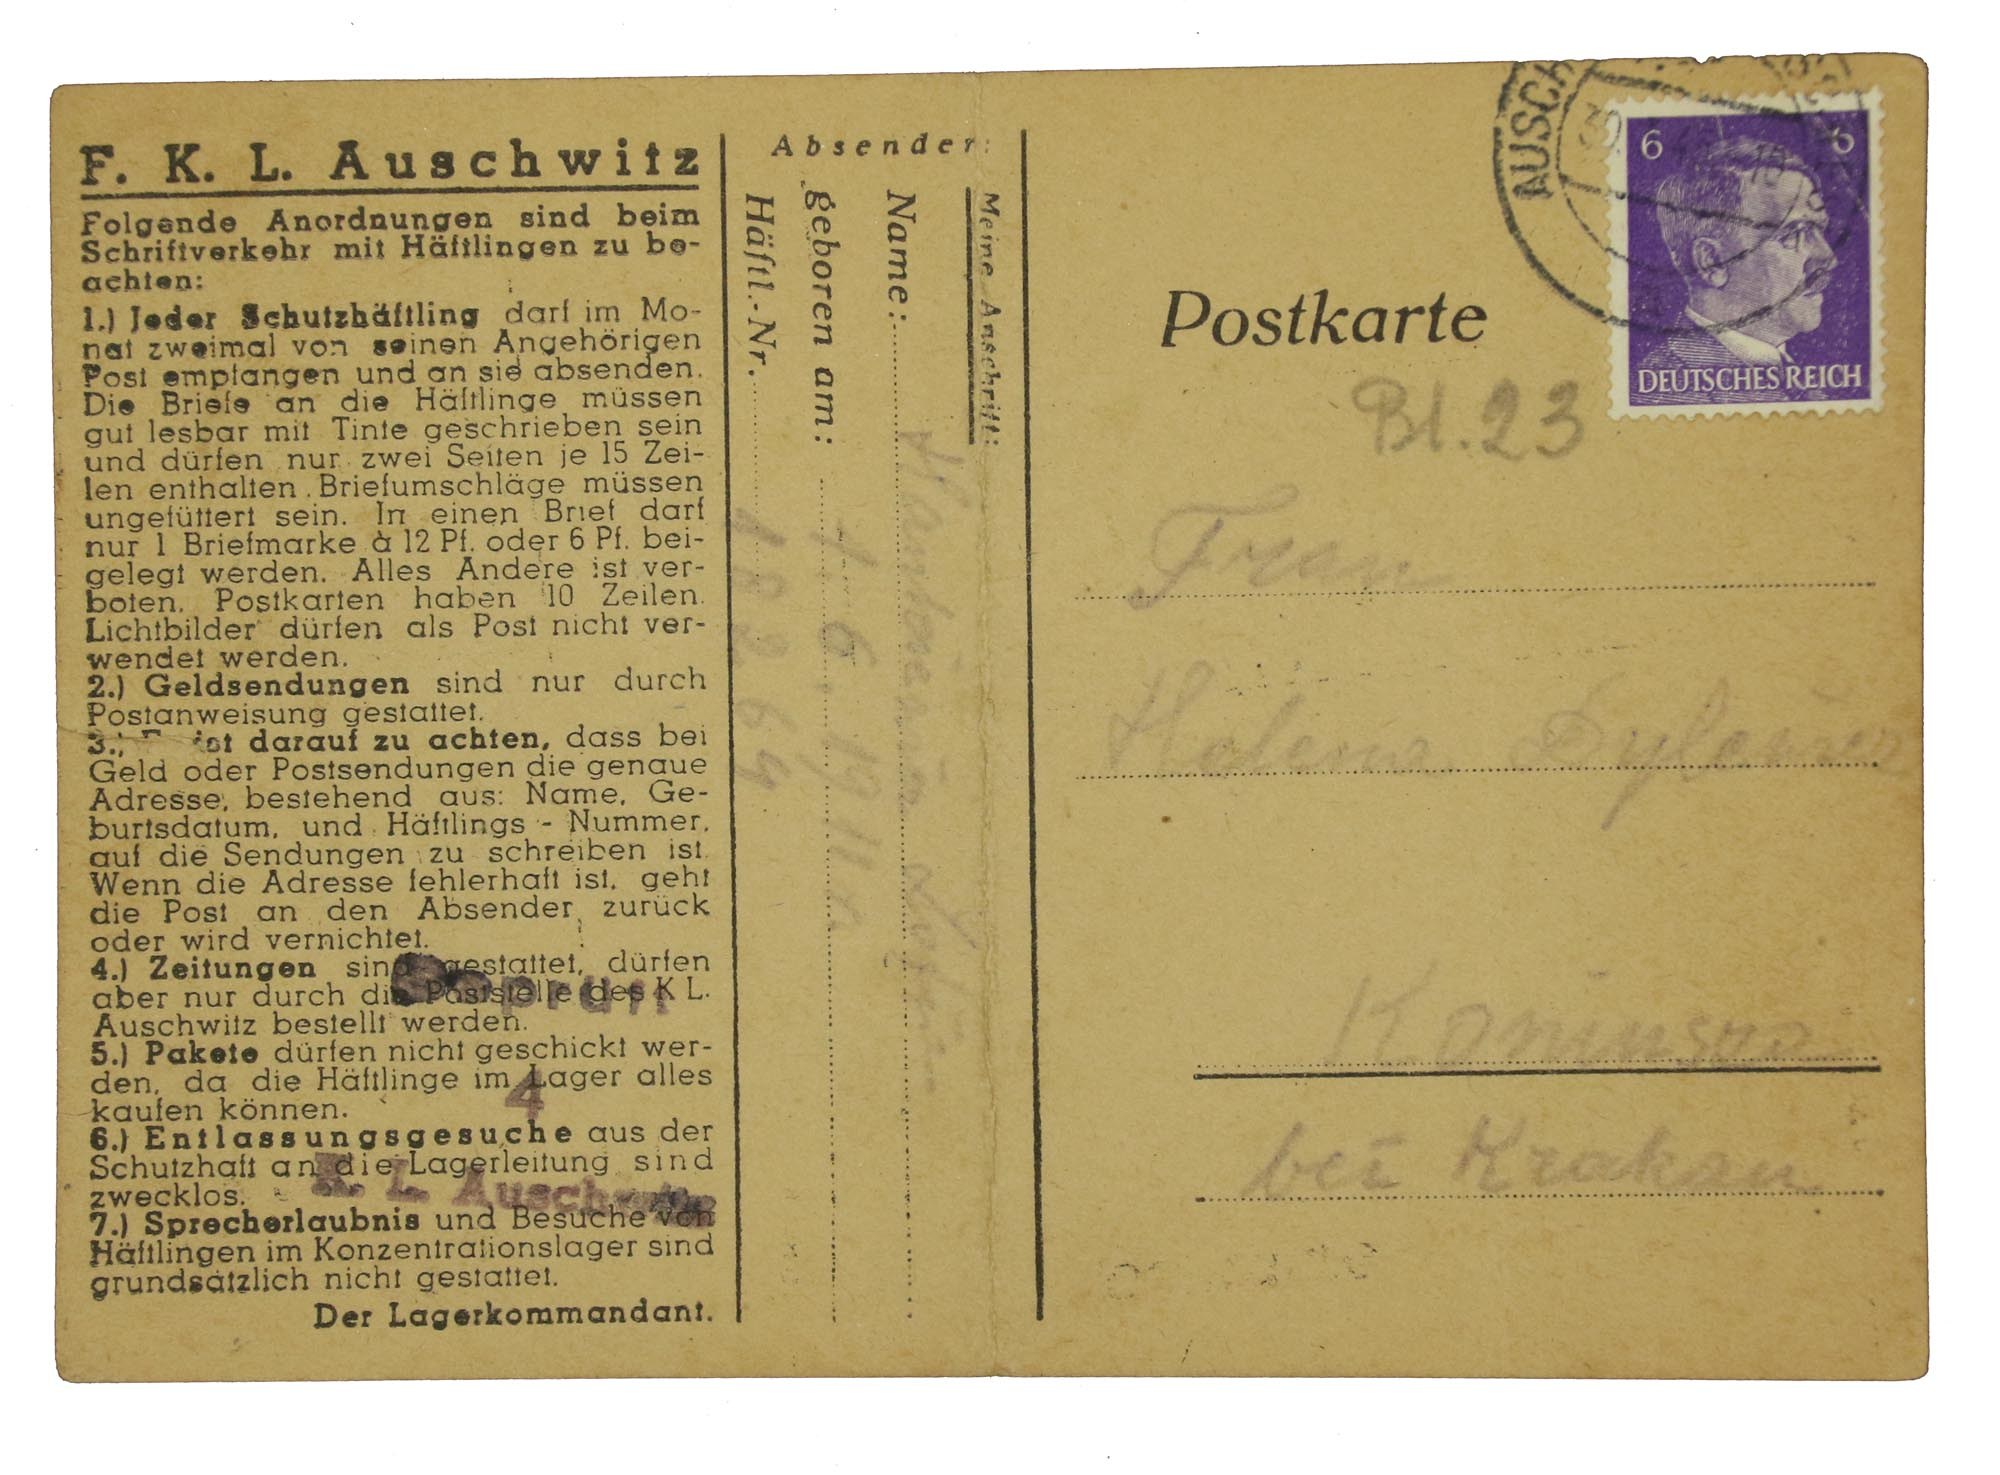 F. K. L. Auschwitz
Folgende Anordnungen sind beim
Schriftverkehr mit Häftlingen zu be-
achten:
1.) Jeder Schutzhäftling darf im Mo-
nat zweimal von seinen Angehörigen
Post empfangen und an sie absenden.
Die Briefe an die Häftlinge müssen
gut lesbar mit Tinte geschrieben sein
und dürfen nur zwei Seiten je 15 Zei-
len enthalten. Briefumschläge müssen
ungefüttert sein. In einen Brief darf
nur 1 Briefmarke à 12 Pf. oder 6 Pf. bei-
gelegt werden. Alles Andere ist ver-
boten. Postkarten haben 10 Zeilen.
Lichtbilder dürfen als Post nicht ver-
wendet werden.
2.) Geldsendungen sind nur durch
Postanweisung gestattet.
3.) ist darauf zu achten, dass bei
Geld oder Postsendungen die genaue
Adresse, bestehend aus: Name, Ge-
burtsdatum, und Häftlings - Nummer,
auf die Sendungen zu schreiben ist.
Wenn die Adresse fehlerhaft ist, geht
die Post an den Absender zurück
oder wird vernichtet.
4.) Zeitungen sind gestattet, dürfen
aber nur durch die Poststelle des K L.
Auschwitz bestellt werden.
5.) Pakete dürfen nicht geschickt wer-
den, da die Häftlinge im Lager alles
kaufen können.
6.) Entlassungsgesuche aus der
Schutzhaft an die Lagerleitung sind
zwecklos.
7.) Sprecherlaubnis und Besuche von
Häftlingen im Konzentrationslager sind
grundsätzlich nicht gestattet.
Der Lagerkommandant.
4
K. L. Auschwitz
Absender:
Meine Anschrift:
Name:
geboren am:
Häftl.-Nr.
Postkarte
6 6
DEUTSCHES REICH
AUSCH
Bl. 23
Frau
Helena
bei Krakau